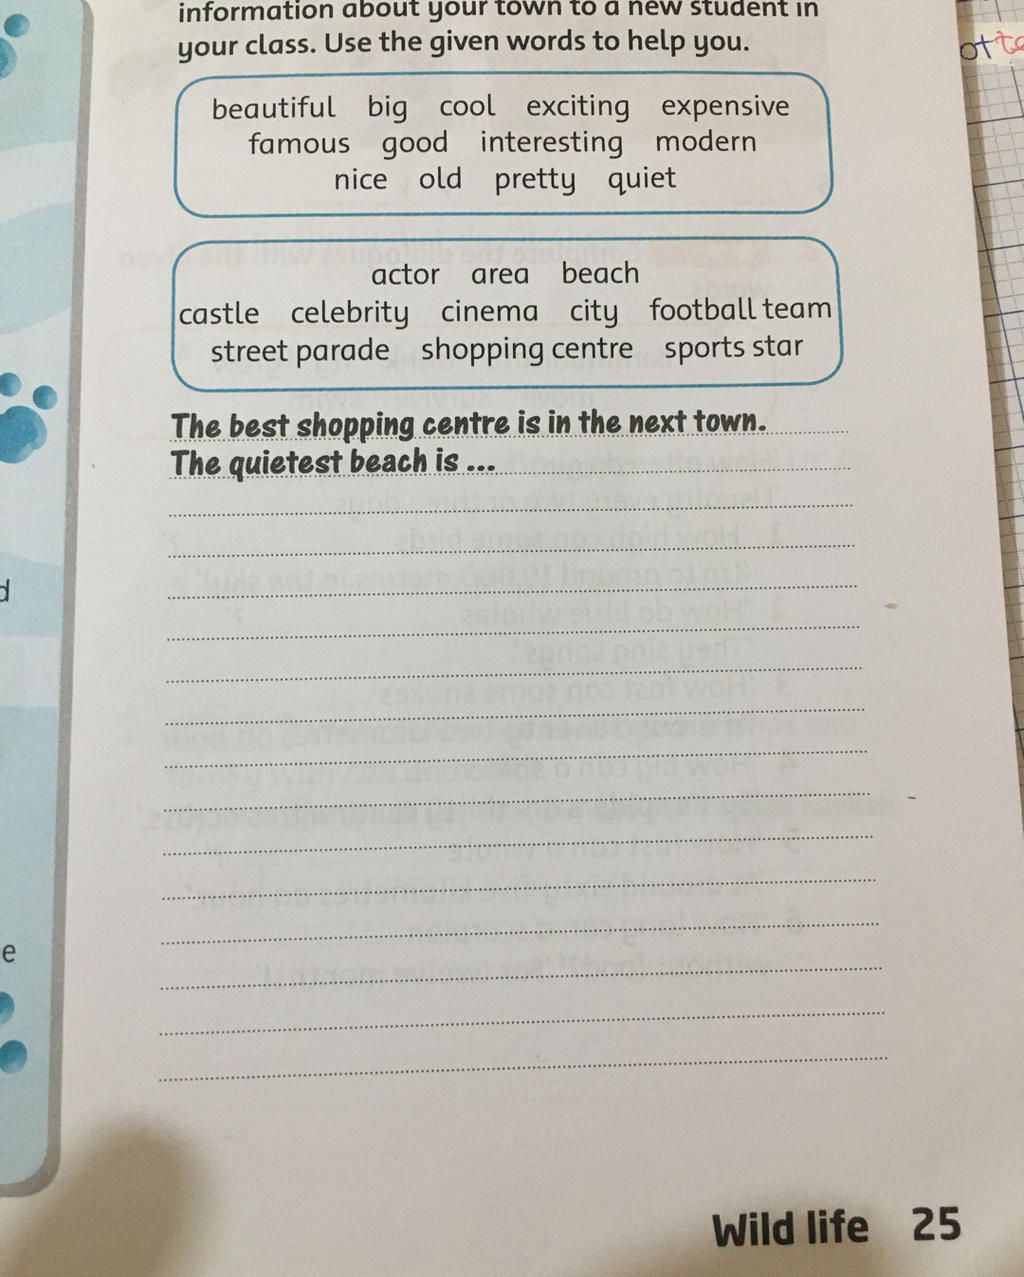 information about your town to a new student in
your class. Use the given words to help you.
beautiful big cool exciting expensive
famous good interesting modern
nice old pretty quiet
actor area beach
castle celebrity cinema city football team
street parade shopping centre sports star
The best shopping centre is in the next town.
The quietest beach is ...
d
e
Wild life 25